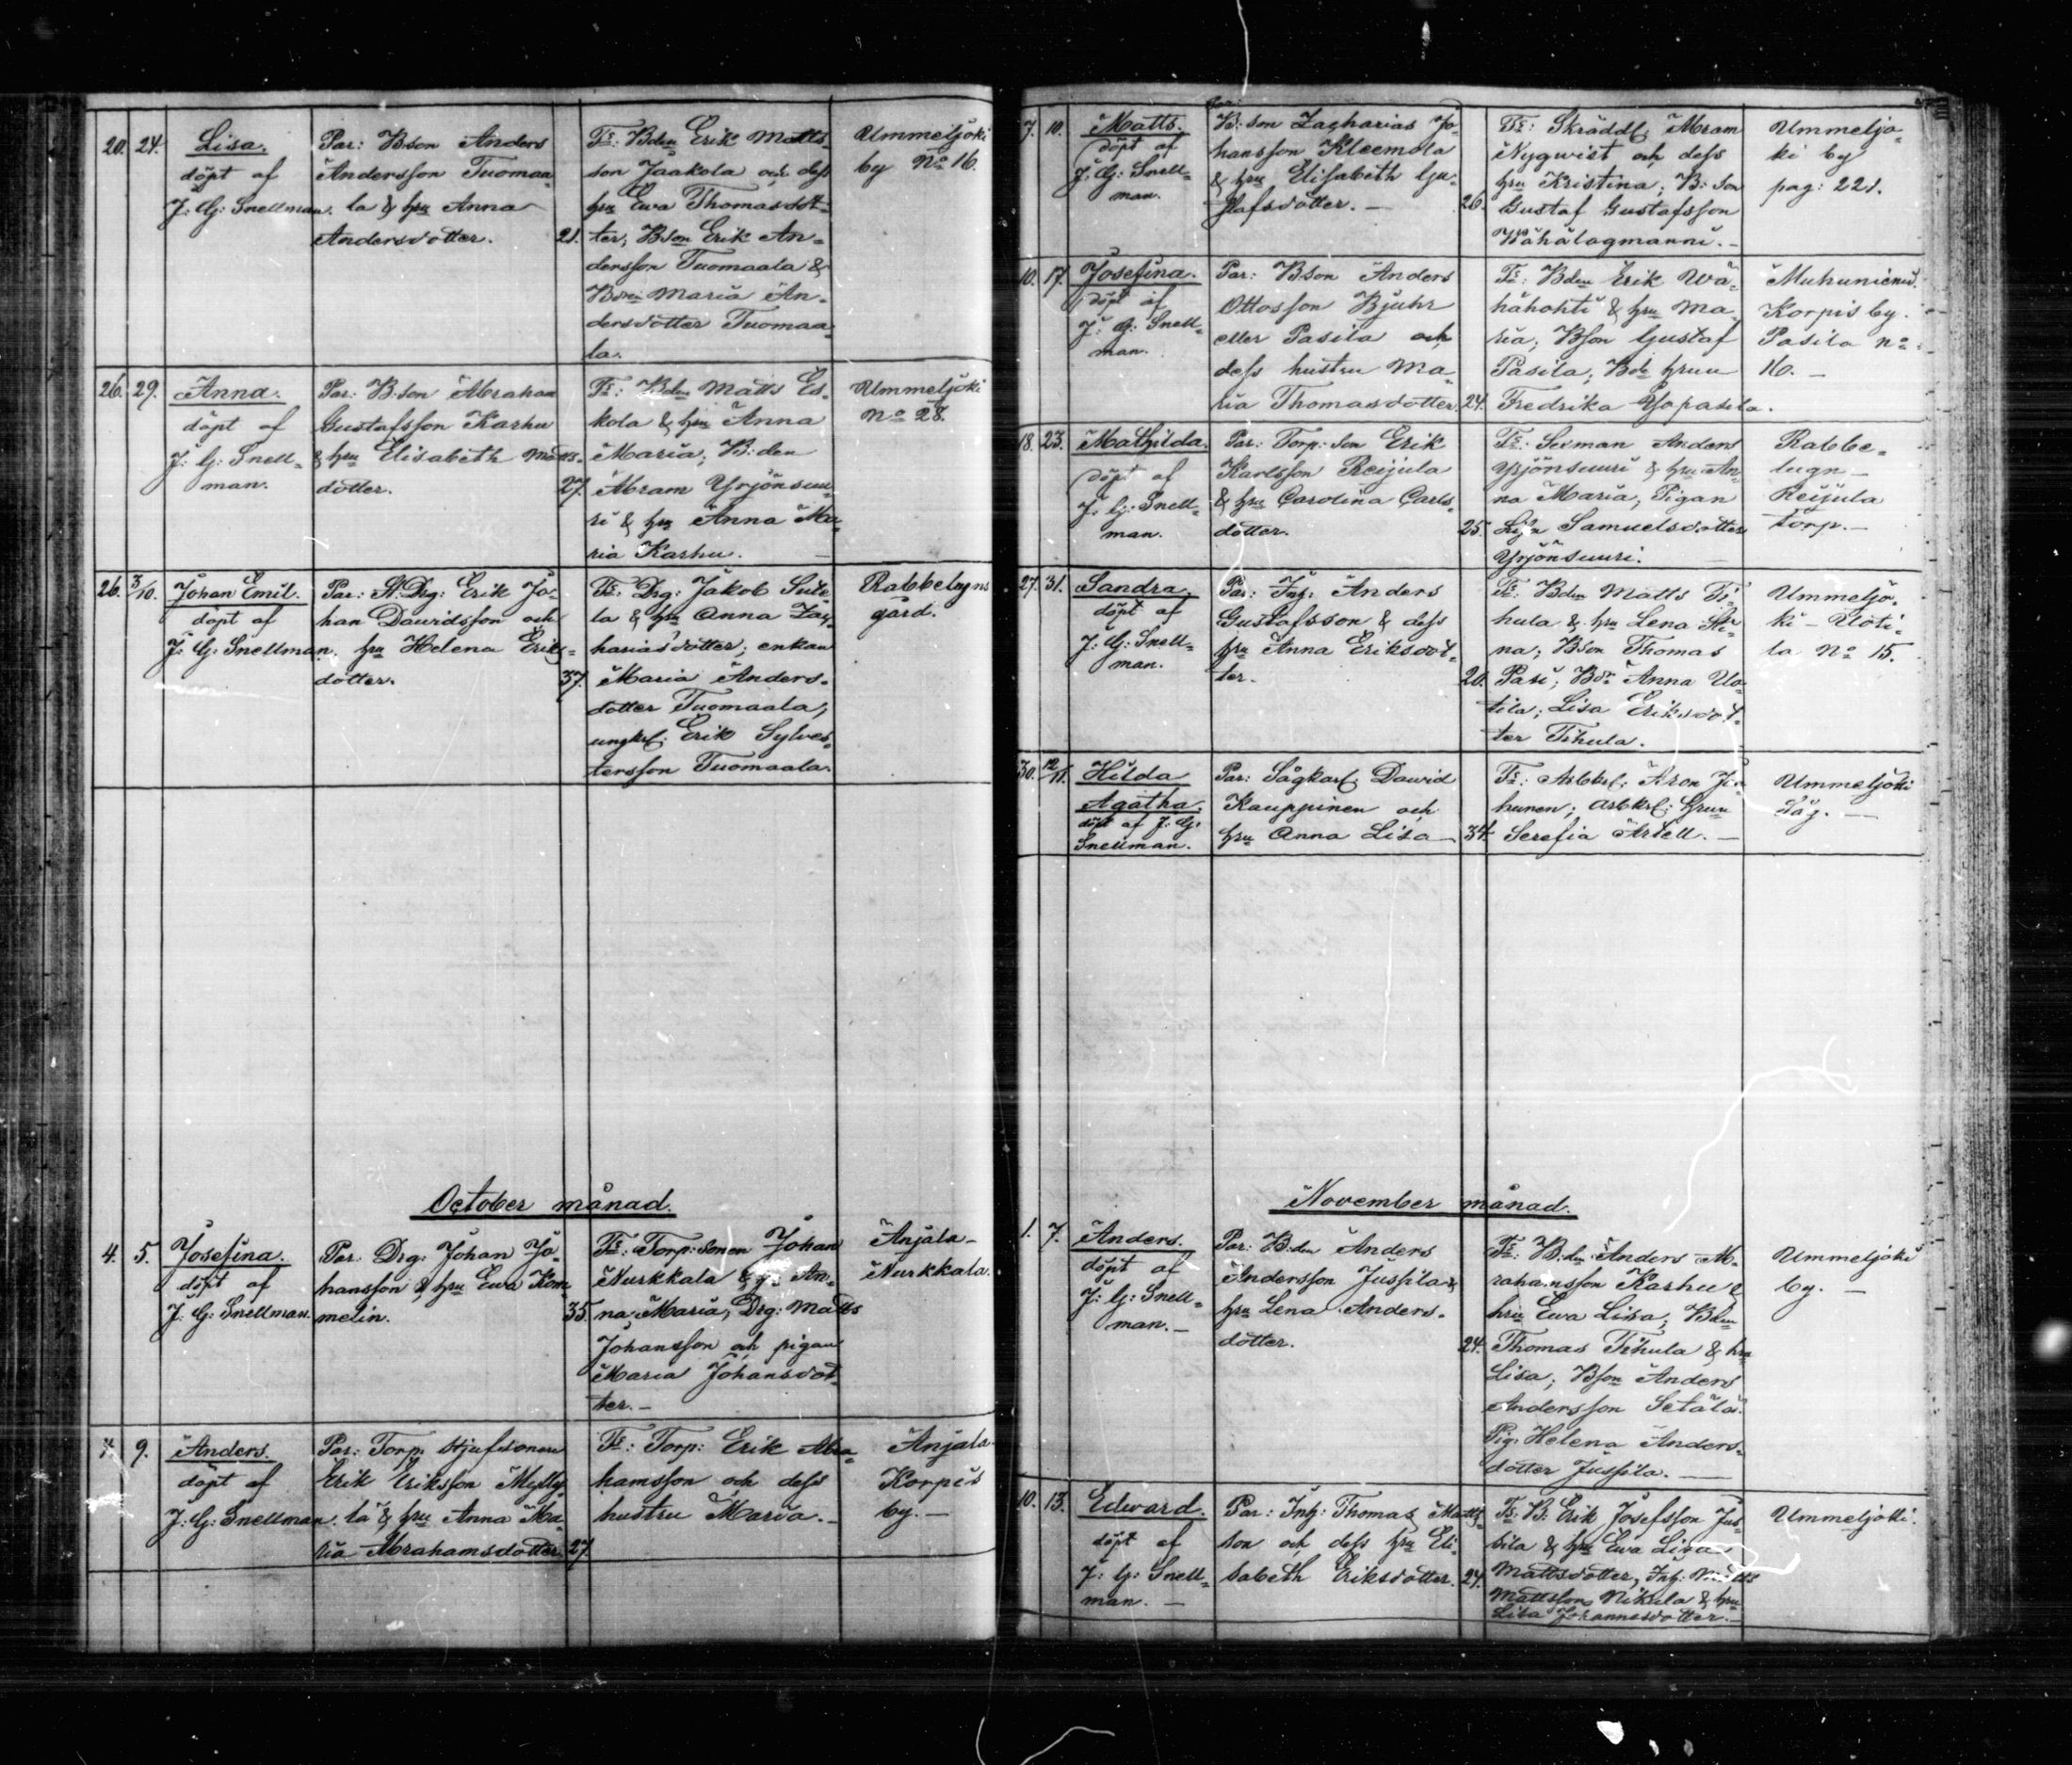 20. 24. Lisa.
döpt af
J: G: Snellman.
Par: B:son Anders
Andersson Tuomaa-
la & hru Anna
Andersdotter.
21.
Fr: Bden Erik Matts-
son Jaakola och dess
hru Ewa Thomasdot-
ter; Bson Erik An-
dersson Tuomaala &
Bdrn Maria An-
dersdotter Tuomaa-
la.
Ummeljoki
by No 16.
26. 29. Anna.
döpt af
J: G: Snell-
man.
Par: B:son Abraham
Gustafsson Karhu
& hru Elisabeth Matts-
dotter.
27.
Fr: Bden Matts Es-
kola & hru Anna
Maria; B:den
Abram Yrjönsuu-
ri & hru Anna Ma-
ria Karhu.
Ummeljoki
No 28.
26. 3/10. Johan Emil.
döpt af
J: G: Snellman.
Par: St: Drg: Erik Jo-
han Davidsson och
hru Helena Eriks-
dotter.
37.
Fr: Drg: Jakob Sute-
la & hru Anna Zac-
hariasdotter; enkan
Maria Anders-
dotter Tuomaala;
ungkrl: Erik Sylves-
tersson Tuomaala.
Rabbelugns
gård.
October månad.
4. 5. Josefina.
döpt af
J: G: Snellman.
Par: Drg: Johan Jo-
hansson & hru Ewa Kom-
melin.
35.
Fr: Torp:sonen Johan
Nurkkala & An-
na Maria; Drg: Matts
Johansson och pigan
Maria Johansdot-
ter. -
Anjala -
Nurkkala.
7. 9. Anders.
döpt af
J: G: Snellman.
Par: Torp: stjufsonen
Erik Eriksson Mylly-
lä & hru Anna Ma-
ria Abrahamsdotter.
27.
Fr: Torp: Erik Abra-
hamsson och dess
hustru Maria. -
Anjala
Korpis
by. -
7. 10. Matts.
döpt af
J: G: Snell-
man.
Par:
B:son Zacharias Jo-
hansson Kleemola
& hru Elisabeth Gu-
stafsdotter. -
26.
Fr: Skräddl: Abram
Nyqwist och dess
hru Kristina; B:son
Gustaf Gustafsson
Wähälagmanni. -
Ummeljo-
ki by
pag: 221.
10. 17. Josefina.
döpt af
J: G: Snell-
man.
Par: Bson Anders
Ottosson Bjuhr
eller Pasila och
dess hustru Ma-
ria Thomasdotter.
24.
Fr: Bden Erik Wä-
hähohti & hru Ma-
ria; Bson Gustaf
Pasila; Bde hrun
Fredrika Yöpasila.
Muhuniemi.
Korpis by.
Pasila no
16. -
18. 23. Mathilda.
döpt af
J: G: Snell-
man.
Par: Torp: son Erik
Karlsson Reijula
& hru Carolina Carls-
dotter.
25.
Fr: Sexman Anders
Yrjönsuuri & hru An-
na Maria; Pigan
Lisa Samuelsdotter
Yrjönsuuri.
Rabbe-
lugn -
Reijula
torp. -
27. 31. Sandra.
döpt af
J: G: Snell-
man.
Par: Inh: Anders
Gustafsson & dess
hru Anna Eriksdot-
ter.
20.
Fr: Bden Matts Ti-
hula & hru Lena Sti-
na; Bson Thomas
Pasi; Bdr Anna Uo-
tila; Lisa Eriksdot-
ter Tihula.
Ummeljo-
ki - Uoti-
la No 15.
30. 12/11. Hilda
Agatha.
döpt af J: G:
Snellman.
Par: Sågkarl: David
Kauppinen och
hru Anna Lisa
34.
Fr: Arbkrl: Aron
hunen; arbkrl: hrun
Serefia Artell. -
Ummeljoki
Såg. -
November månad.
1. 7. Anders.
döpt af
J: G: Snell-
man. -
Par: B:den Anders
Andersson Jussila &
hru Lena Anders-
dotter.
24.
Fr: B:den Anders Ab-
rahamsson Karhu &
hru Ewa Lisa; Bden
Thomas Tihula & hru
Lisa; Bson Anders
Andersson Setälä.
Pig: Helena Anders-
dotter Jussila. -
Ummeljoki
by. -
10. 13. Edward.
döpt af
J: G: Snell-
man. -
Par: Inh: Thomas Matts-
son och dess hru Eli-
sabeth Eriksdotter.
24.
Fr: B: Erik Josefsson Jus-
sila & hru Ewa Lisa
Mattsdotter, Inh: Matts
Mattsson Nikula & hru
Lisa Johannesdotter.
Ummeljoki.